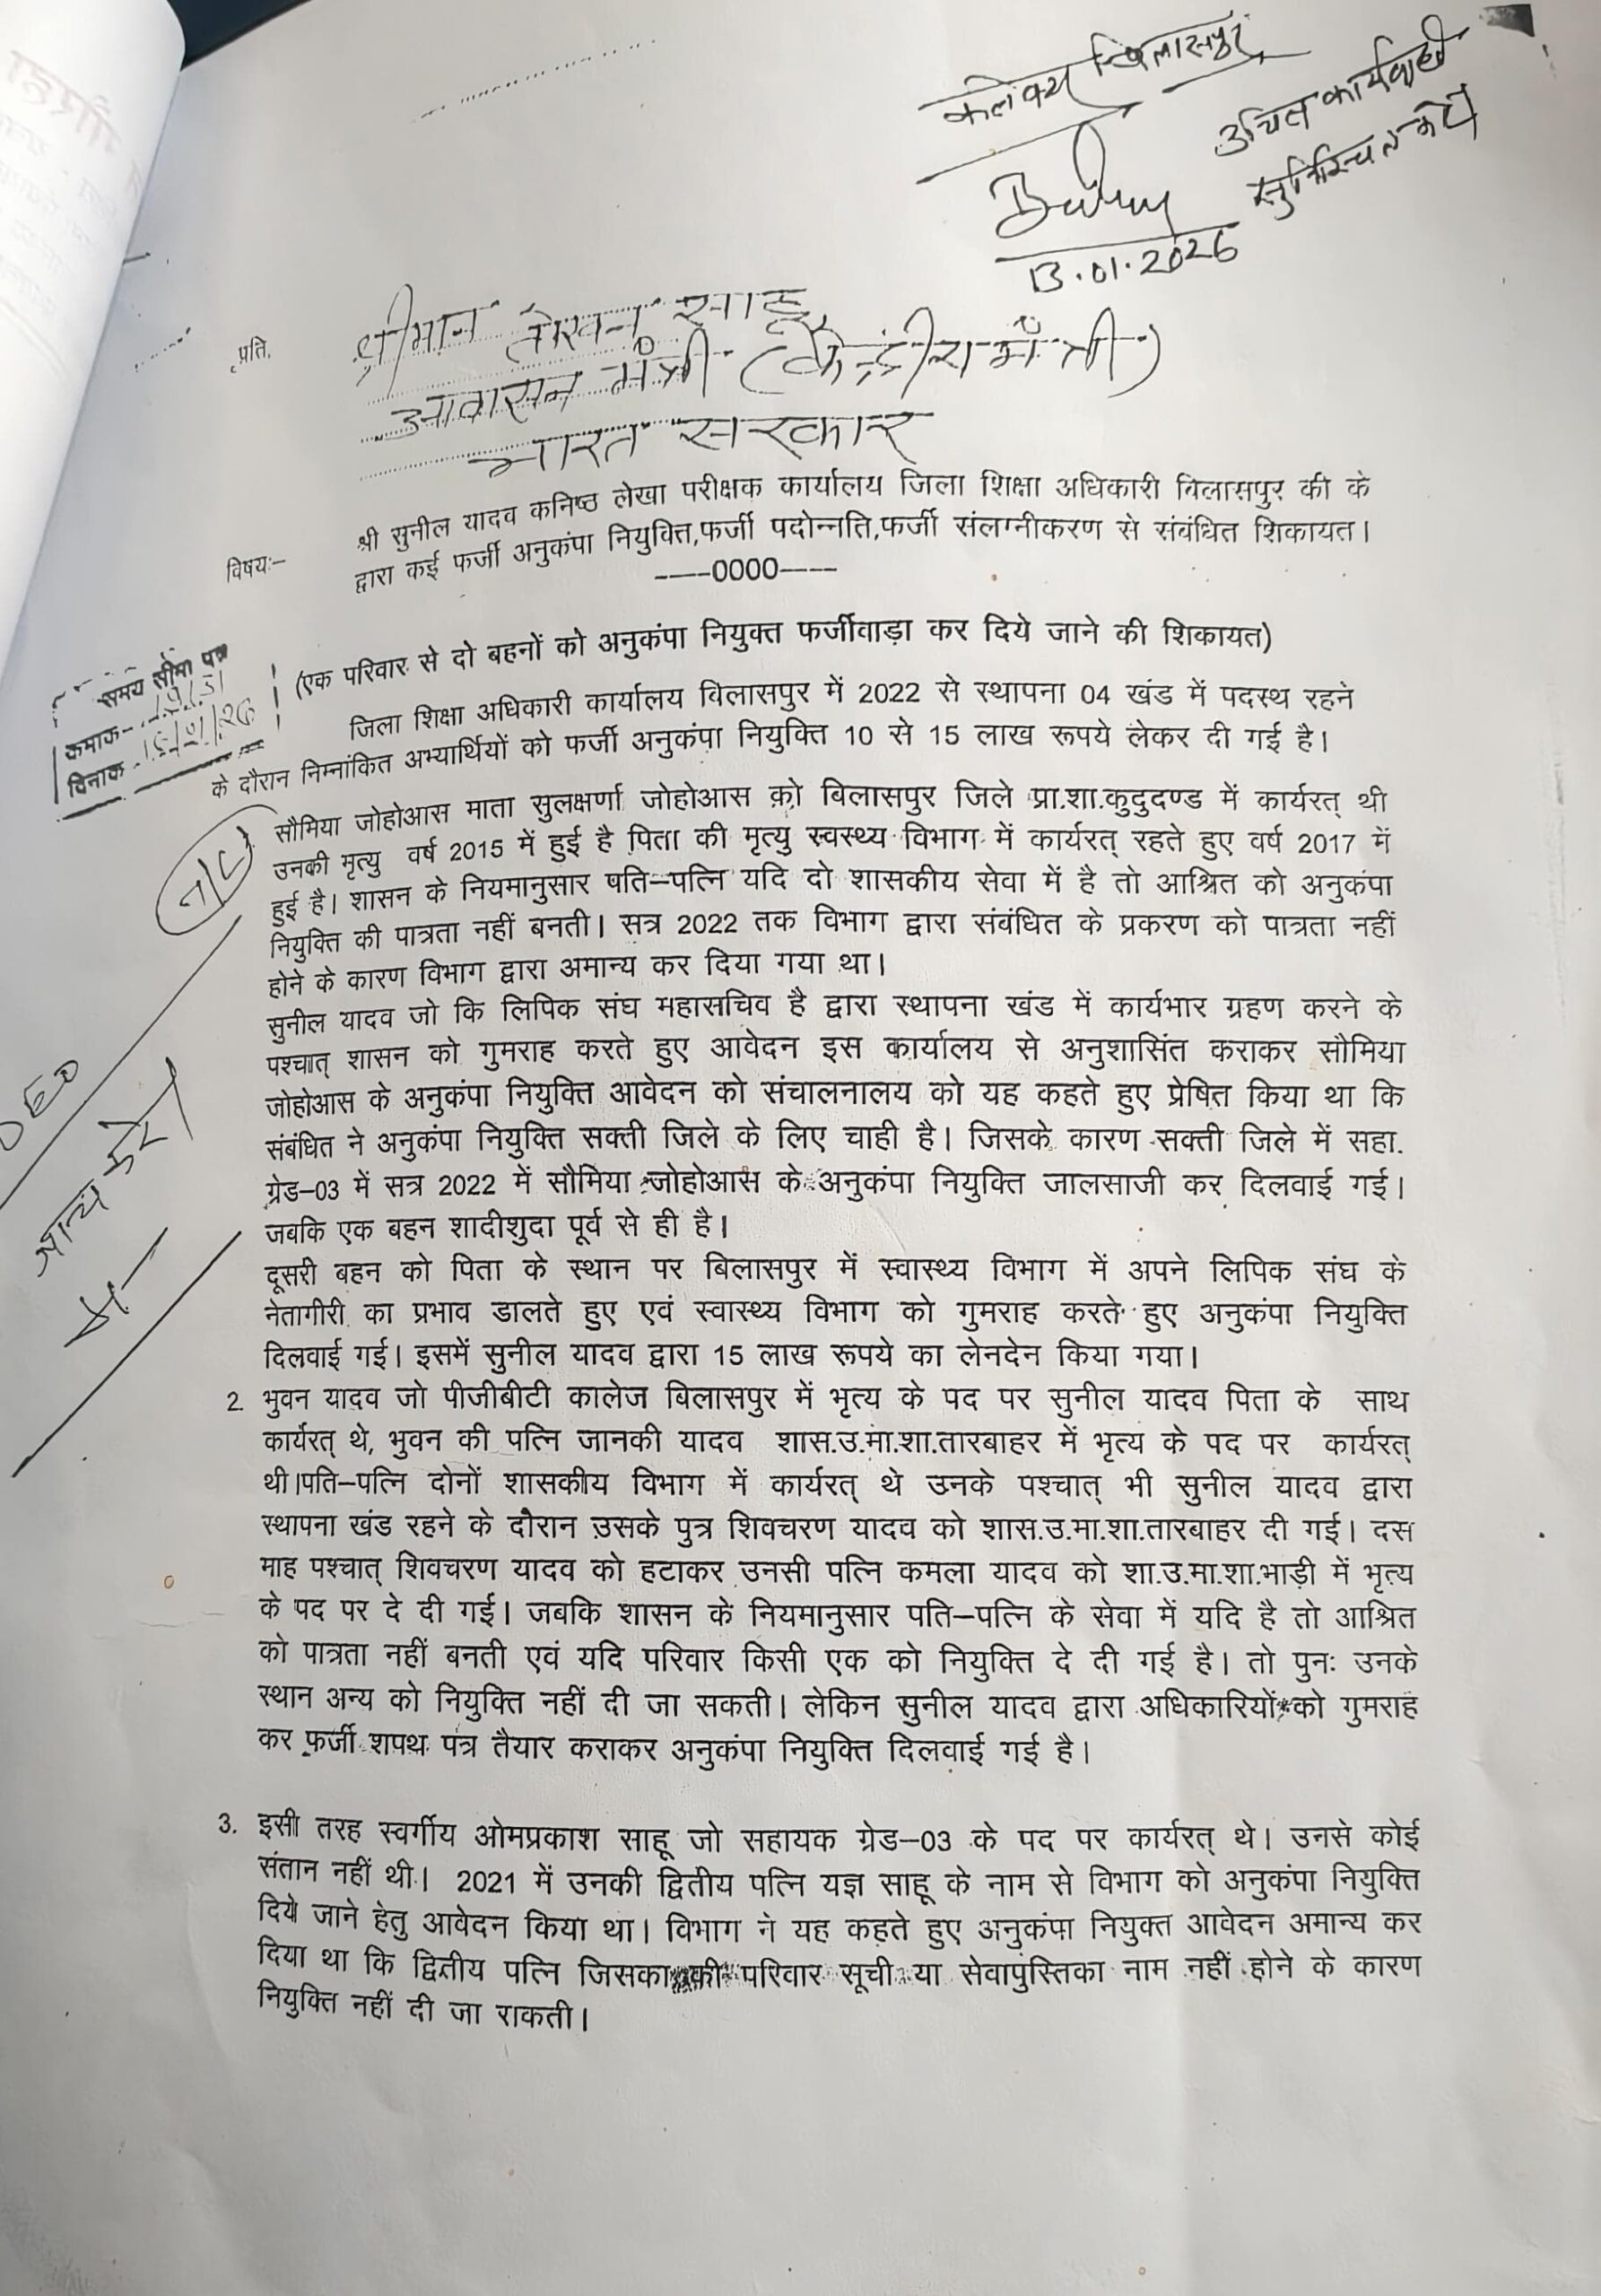 कलेक्टर बिलासपुर
उचित कार्यवाही
सुनिश्चित करें
13.01.2026
प्रति,
श्रीमान तोखन साहू
आवासन मंत्री (केन्द्रीय मंत्री)
भारत सरकार
विषय:–
श्री सुनील यादव कनिष्ठ लेखा परीक्षक कार्यालय जिला शिक्षा अधिकारी विलासपुर की के
द्वारा कई फर्जी अनुकंपा नियुक्ति,फर्जी पदोन्नति,फर्जी संलग्नीकरण से संबंधित शिकायत।
----0000----
(एक परिवार से दो बहनों को अनुकंपा नियुक्त फर्जीवाड़ा कर दिये जाने की शिकायत)
समय सीमा पत्र
कमाक-
दिनाक
जिला शिक्षा अधिकारी कार्यालय विलासपुर में 2022 से स्थापना 04 खंड में पदस्थ रहने
के दौरान निम्नांकित अभ्यार्थियों को फर्जी अनुकंपा नियुक्ति 10 से 15 लाख रूपये लेकर दी गई है।
सौमिया जोहोआस माता सुलक्षर्णा जोहोआस को बिलासपुर जिले प्रा.शा.कुदुदण्ड में कार्यरत् थी
उनकी मृत्यु वर्ष 2015 में हुई है पिता की मृत्यु स्वस्थ्य विभाग में कार्यरत् रहते हुए वर्ष 2017 में
हुई है। शासन के नियमानुसार पति–पत्नि यदि दो शासकीय सेवा में है तो आश्रित को अनुकंपा
नियुक्ति की पात्रता नहीं बनती। सत्र 2022 तक विभाग द्वारा संबंधित के प्रकरण को पात्रता नहीं
होने के कारण विभाग द्वारा अमान्य कर दिया गया था।
सुनील यादव जो कि लिपिक संघ महासचिव है द्वारा स्थापना खंड में कार्यभार ग्रहण करने के
पश्चात् शासन को गुमराह करते हुए आवेदन इस कार्यालय से अनुशासिंत कराकर सौमिया
जोहोआस के अनुकंपा नियुक्ति आवेदन को संचालनालय को यह कहते हुए प्रेषित किया था कि
संबंधित ने अनुकंपा नियुक्ति सक्ती जिले के लिए चाही है। जिसके कारण सक्ती जिले में सहा.
ग्रेड–03 में सत्र 2022 में सौमिया जोहोआस के अनुकंपा नियुक्ति जालसाजी कर दिलवाई गई।
जबकि एक बहन शादीशुदा पूर्व से ही है।
दूसरी बहन को पिता के स्थान पर बिलासपुर में स्वास्थ्य विभाग में अपने लिपिक संघ के
नेतागीरी का प्रभाव डालते हुए एवं स्वास्थ्य विभाग को गुमराह करते हुए अनुकंपा नियुक्ति
दिलवाई गई। इसमें सुनील यादव द्वारा 15 लाख रूपये का लेनदेन किया गया।
DEO
जान्च करें
2. भुवन यादव जो पीजीबीटी कालेज बिलासपुर में भृत्य के पद पर सुनील यादव पिता के साथ
कार्यरत् थे, भुवन की पत्नि जानकी यादव शास.उ.मा.शा.तारबाहर में भृत्य के पद पर कार्यरत्
थी।पति–पत्नि दोनों शासकीय विभाग में कार्यरत् थे उनके पश्चात् भी सुनील यादव द्वारा
स्थापना खंड रहने के दौरान उसके पुत्र शिवचरण यादव को शास.उ.मा.शा.तारबाहर दी गई। दस
माह पश्चात् शिवचरण यादव को हटाकर उनसी पत्नि कमला यादव को शा.उ.मा.शा.भाड़ी में भृत्य
के पद पर दे दी गई। जबकि शासन के नियमानुसार पति–पत्नि के सेवा में यदि है तो आश्रित
को पात्रता नहीं बनती एवं यदि परिवार किसी एक को नियुक्ति दे दी गई है। तो पुनः उनके
स्थान अन्य को नियुक्ति नहीं दी जा सकती। लेकिन सुनील यादव द्वारा अधिकारियों को गुमराह
कर फर्जी शपथ पत्र तैयार कराकर अनुकंपा नियुक्ति दिलवाई गई है।
3. इसी तरह स्वर्गीय ओमप्रकाश साहू जो सहायक ग्रेड–03 के पद पर कार्यरत् थे। उनसे कोई
संतान नहीं थी। 2021 में उनकी द्वितीय पत्नि यज्ञ साहू के नाम से विभाग को अनुकंपा नियुक्ति
दिये जाने हेतु आवेदन किया था। विभाग ने यह कहते हुए अनुकंपा नियुक्त आवेदन अमान्य कर
दिया था कि द्वितीय पत्नि जिसका की परिवार सूची या सेवापुस्तिका नाम नहीं होने के कारण
नियुक्ति नहीं दी जा राकती।